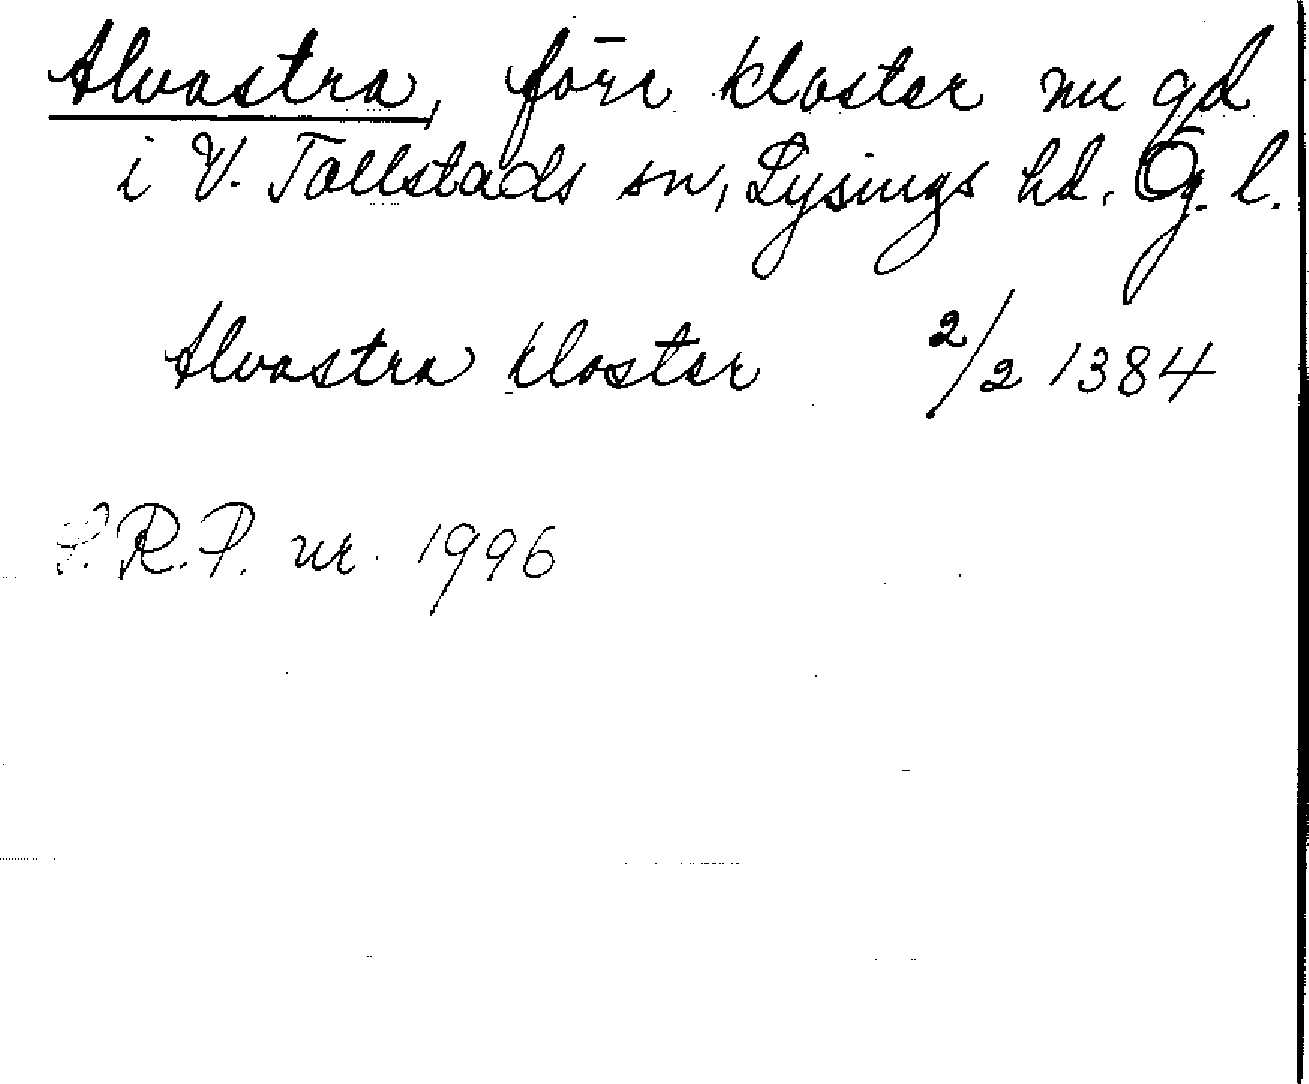 Alvastra, förr kloster nu gd
i V. Tollstads sn, Lysings hd. Ög. l.
Alvastra kloster 2/2 1384
S.R.P. nr. 1996